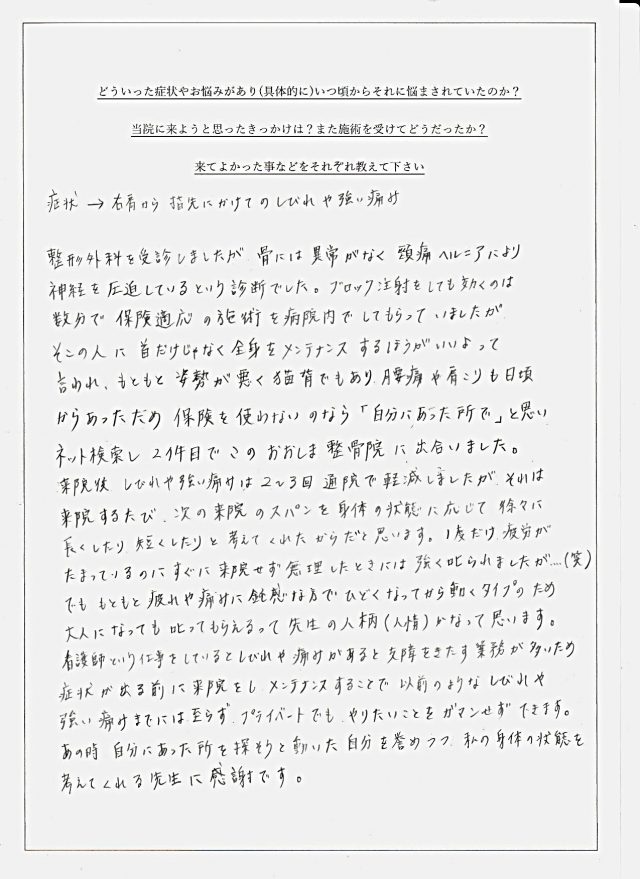 どういった症状やお悩みがあり(具体的に)いつ頃からそれに悩まされていたのか？
当院に来ようと思ったきっかけは？また施術を受けてどうだったか？
来てよかった事などをそれぞれ教えて下さい
症状 → 右肩から 指先にかけてのしびれや強い痛み
整形外科を受診しましたが 骨には異常がなく 頭痛ヘルニアにより
神経を圧迫しているという診断でした。ブロック注射をしても効くのは
数分で 保険適応の施術を病院内でしてもらっていましたが
そこの人に 首だけじゃなく全身をメンテナンスするほうがいいよって
言われ、もともと 姿勢が悪く猫背でもあり 腰痛や肩こりも日頃
からあったため 保険を使わないのなら「自分にあった所で」と思い
ネット検索し 2件目でこのおおしま整骨院に出合いました。
来院後 しびれや強い痛みは2〜3回通院で軽減しましたが それは
来院するたび、次の来院のスパンを身体の状態に応じて 徐々に
長くしたり 短くしたりと 考えてくれたからだと思います。1度だけ 疲労が
たまっているのにすぐに来院せず無理したときには 強く叱られましたが…(笑)
でも もともと疲れや痛みに鈍感な方でひどくなってから動くタイプのため
大人になっても叱ってもらえるって 先生の人柄(人情)かなって思います。
看護師という仕事をしているとしびれや痛みがあると支障をきたす業務が多いため
症状が出る前に来院をし メンテナンスすることで 以前のような しびれや
強い痛みまでには至らず プライベートでも やりたいことをガマンせず できます。
あの時 自分にあった所を探そうと動いた自分を誉めつつ 私の身体の状態を
考えてくれる先生に感謝です。